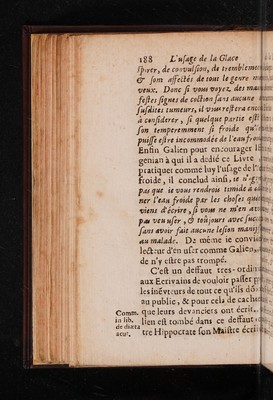 188 L'usage de la Glace
spirer, de convulsion, de tremblemen
& sont affectés de tout le genre ner
veux. Donc si vous voyez des mani
festes signes de coction sans aucune
susdites tumeurs, il vous restera enco
à considerer, si quelque partie est
son temperemment si froide qu'
puisse estre incommodée de l'eau froi
Enfin Galien pour encourager
genian à qui il a dedié ce Livre
pratiquer comme luy l'usage de l'
froide, il conclud ainsi, Je n'
pas que je vous rendrois timide à
ner l'eau froide par les choses que
viens d'écrire, si vous ne m'en av
pas veu user, & toujours avec suc
sans avoir fait aucune lesion manif
au malade. De méme je convie
lecteur d'en user comme Galien,
de n'y estre pas trompé.
C'est un deffaut tres-ordin
aux Ecrivains de vouloir passer p
les inéveurs de tout ce qu'ils dó
au public, & pour cela de cacher
Comm. que leurs devanciers ont écrit.
in lib. lien est tombé dans ce deffaut,
de diæta tre Hippocrate son Maistre écri
acut.